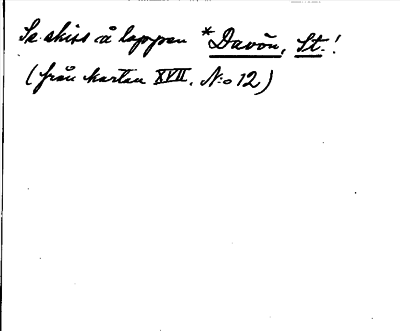 Se skiss å lappen *Davön, St.!
(från kartan XVII, N:o 12)